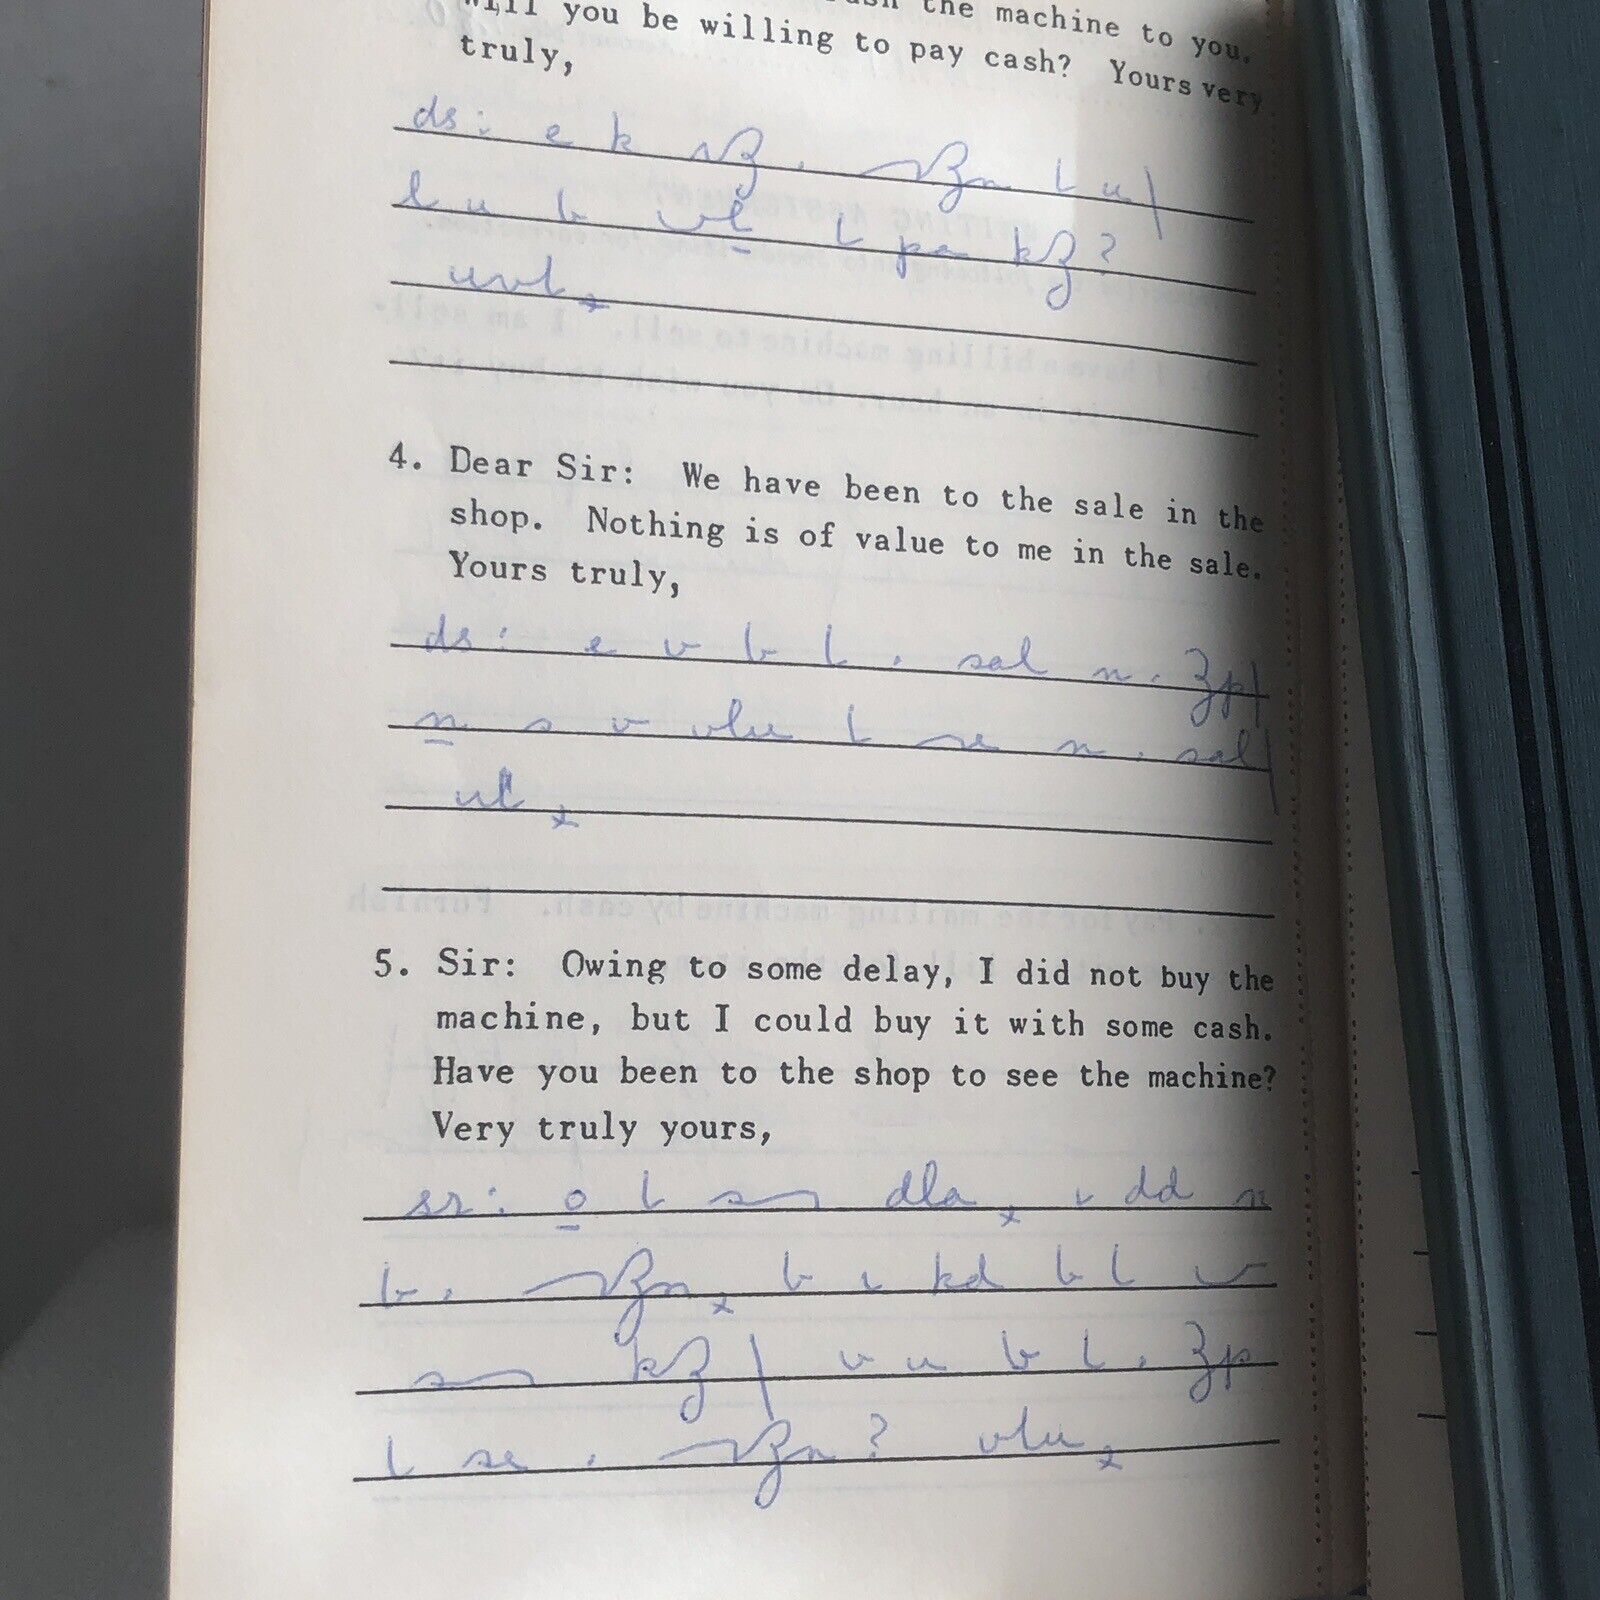 the machine to you.
Will you be willing to pay cash? Yours very
truly,
ds: e k
u b pa ?
uvt
4. Dear Sir: We have been to the sale in the
shop. Nothing is of value to me in the sale.
Yours truly,
ds: e v b . sal n .
n s v vlu n . sal
ut
5. Sir: Owing to some delay, I did not buy the
machine, but I could buy it with some cash.
Have you been to the shop to see the machine?
Very truly yours,
sr: o dla, i dd n
b . b i kd b
v u b .
se . ? vtu